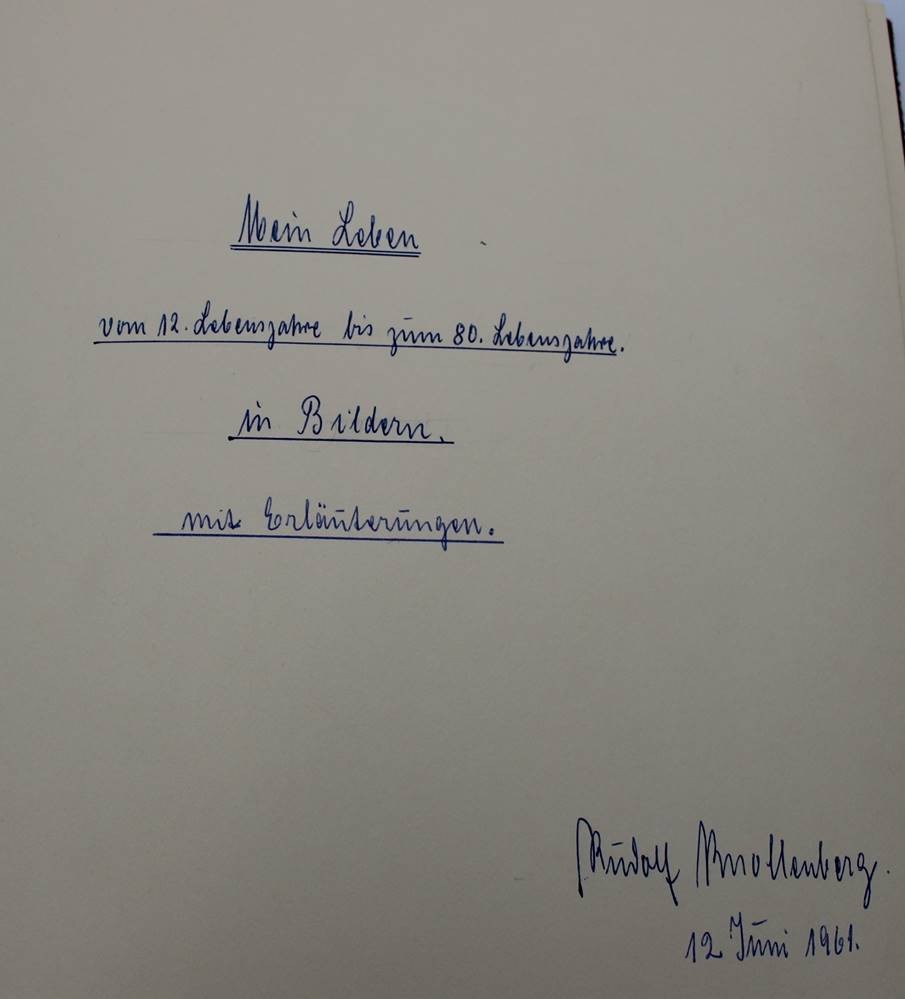 Mein Leben
vom 12. Lebensjahre bis zum 80. Lebensjahre.
in Bildern.
mit Erläuterungen.
Rudolf Knollenberg.
12 Juni 1961.